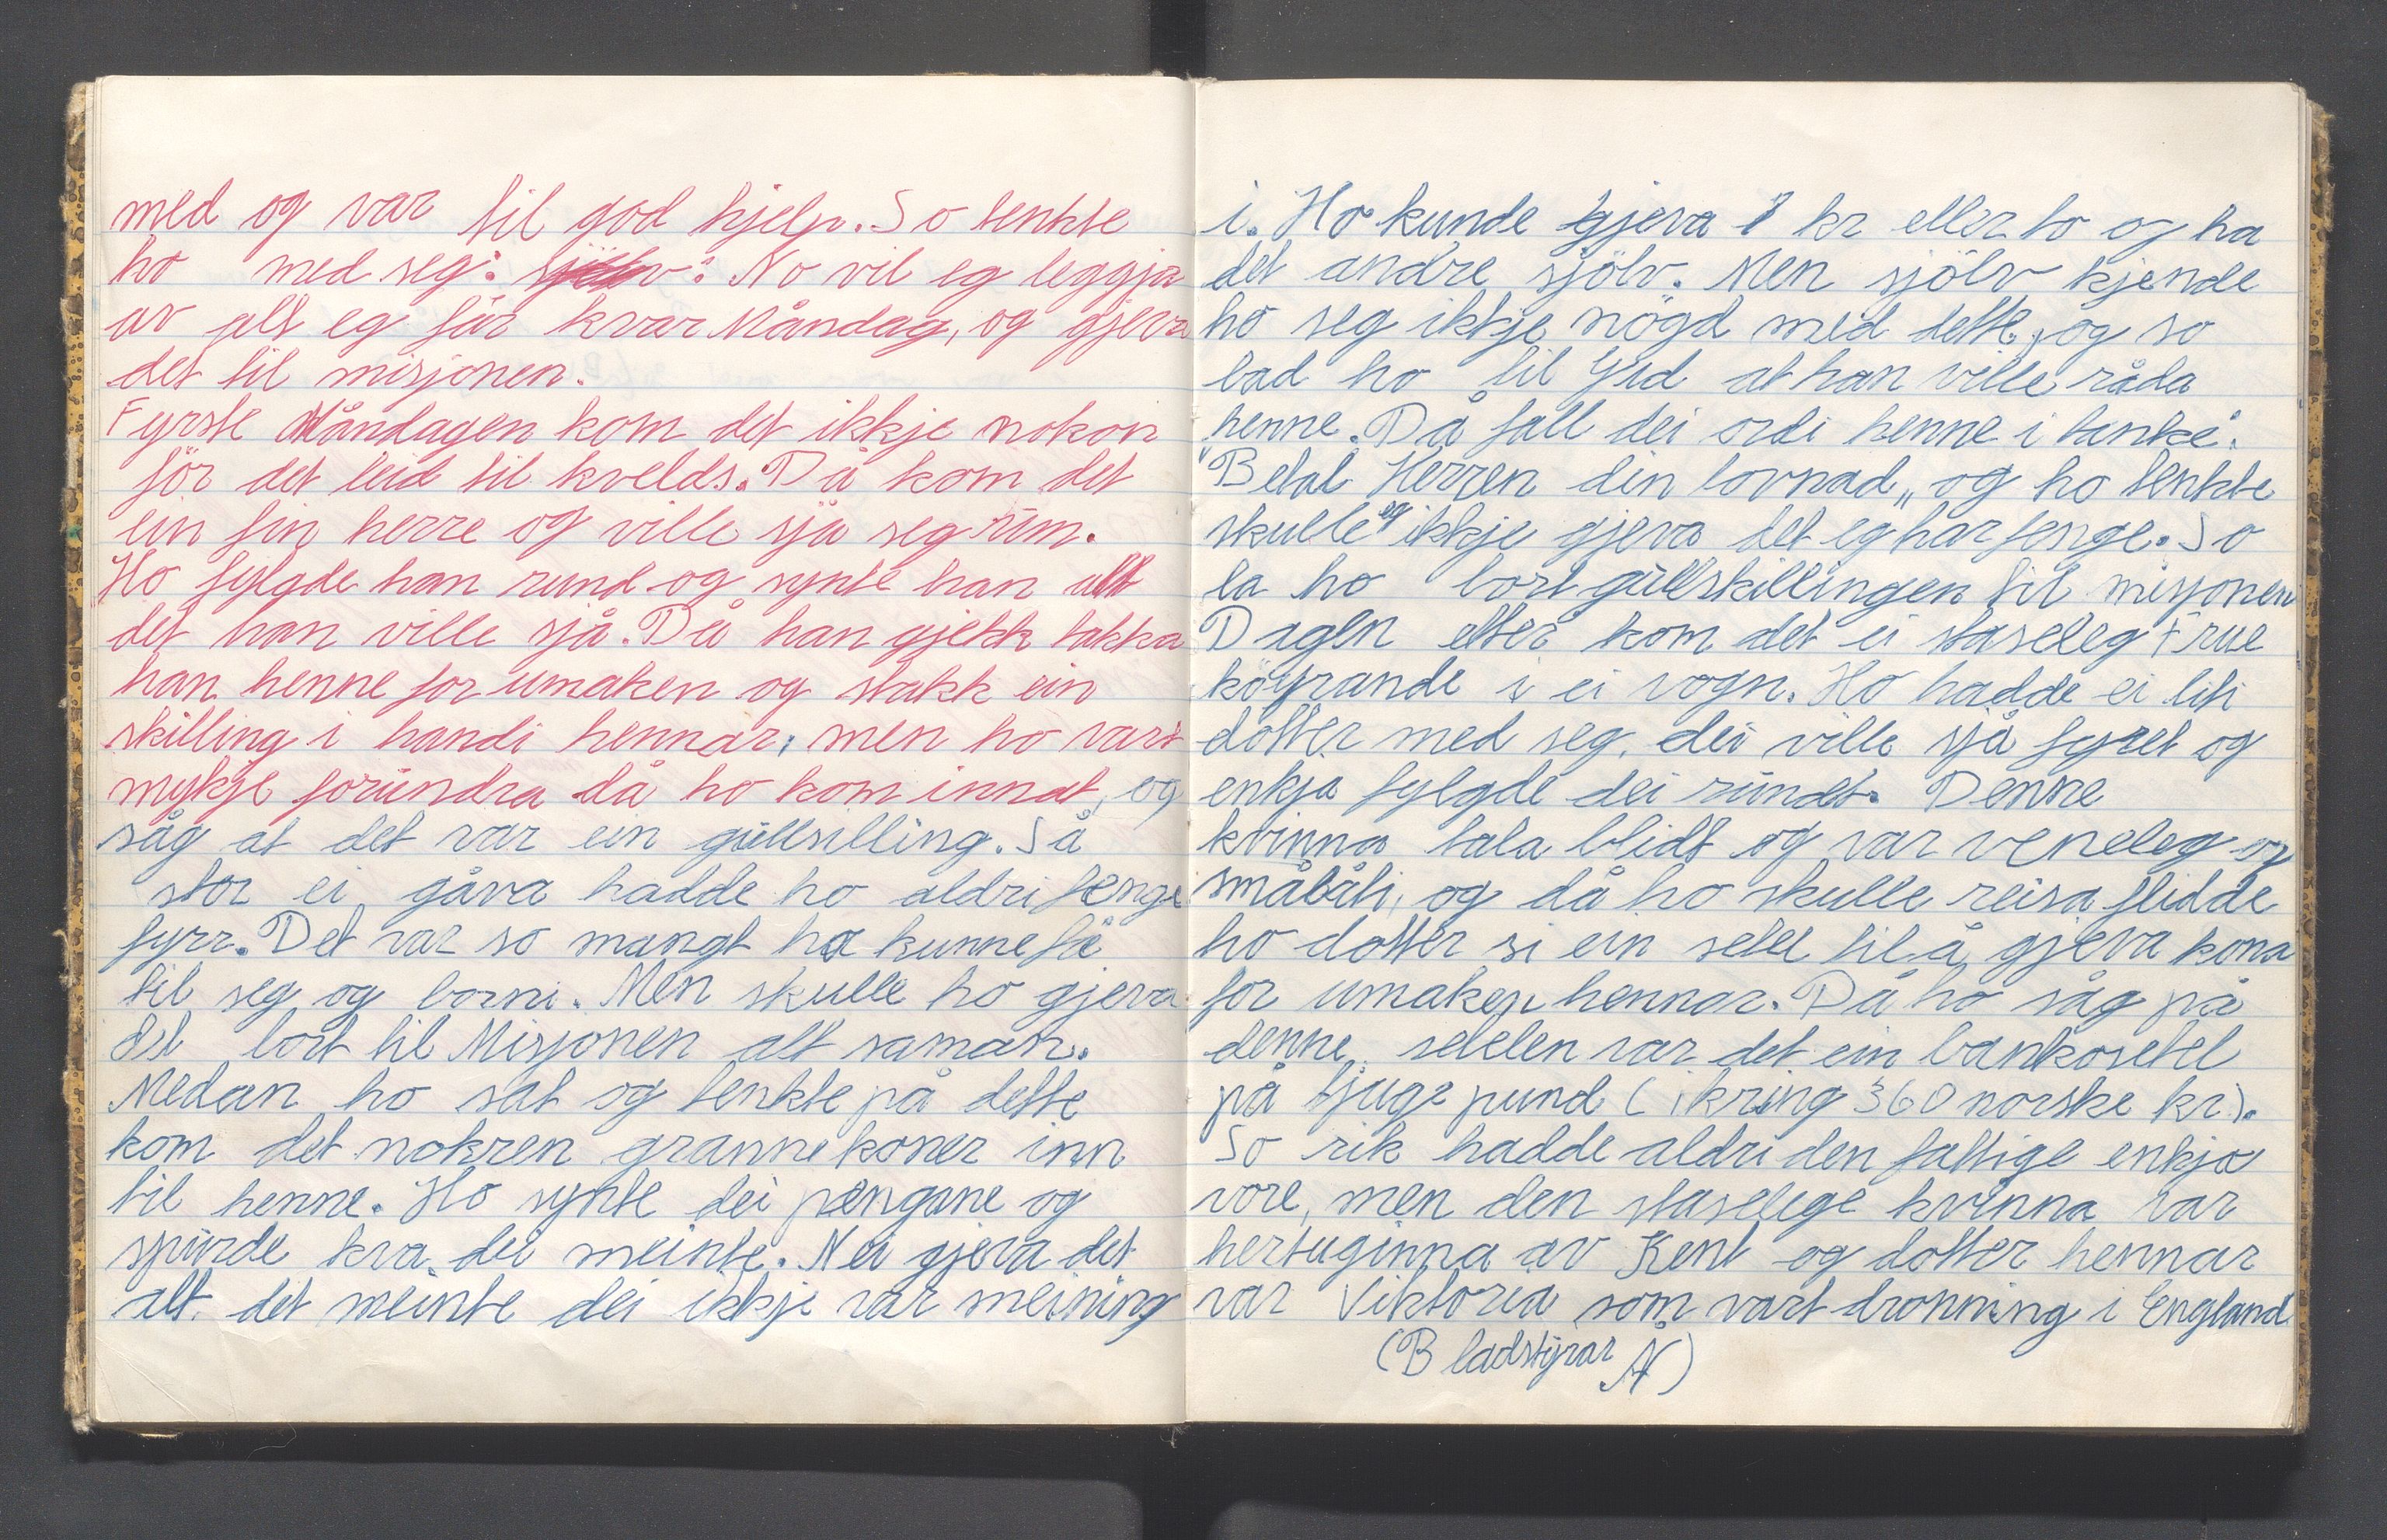 med og var til god hjelp. So tenkte
ho med seg: sjølv: No vil eg leggja
av alt eg får kvar Måndag, og gjeva
det til misjonen.
Fyrste Måndagen kom det ikkje nokon
för det leid til kvelds. Då kom det
ein fin herre og ville sjå seg um.
Ho fylgde han rund og synte han alt
det han ville sjå. Då han gjekk takka
han henne for umaken og stakk ein
skilling i handi hennar, men ho vart
mykje forundra då ho kom innat, og
såg at det var ein gullsilling. Så
stor ei gåva hadde ho aldri fenge
fyrr. Det var so mangt ho kunne få
til seg og borni. Men skulle ho gjeva
det bort til Misjonen alt saman.
Medan ho sat og tenkte på dette
kom det nokren grannekoner inn
til henne. Ho synte dei pengane og
spurde kva dei meinte. Nei gjeva det
alt. det meinte dei ikkje var meining
i. Ho kunde gjeva 1 kr eller to og ha
det andre sjölv. Men sjölv kjende
ho seg ikkje nögd med dette, og so
bad ho til Gud at han ville råda
henne. Då fall dei ordi henne i tanke.
"Betal Herren din lovnad" og ho tenkte
skulle eg ikkje gjeva det eg har fenge. So
la ho bort gullskillingen til misjonen
Dagen etter kom det ei staseleg Frue
köyrande i ei vogn. Ho hadde ei liti
dotter med seg, dei ville sjå fyret og
enkja fylgde dei rundt. Denne
kvinna tala blidt og var veneleg og
småläti, og då ho skulle reisa flidde
ho dotter si ein setel til å gjeva kona
for umaken hennar. Då ho såg på
denne setelen var det ein bankosetel
på tjuge pund (ikring 360 norske kr).
So rik hadde aldri den fattige enkja
vore, men den staselege kvinna var
hertuginna av Kent og dotter hennar
var Viktoria som vart dronning i England.
(Bladstyrar Å)